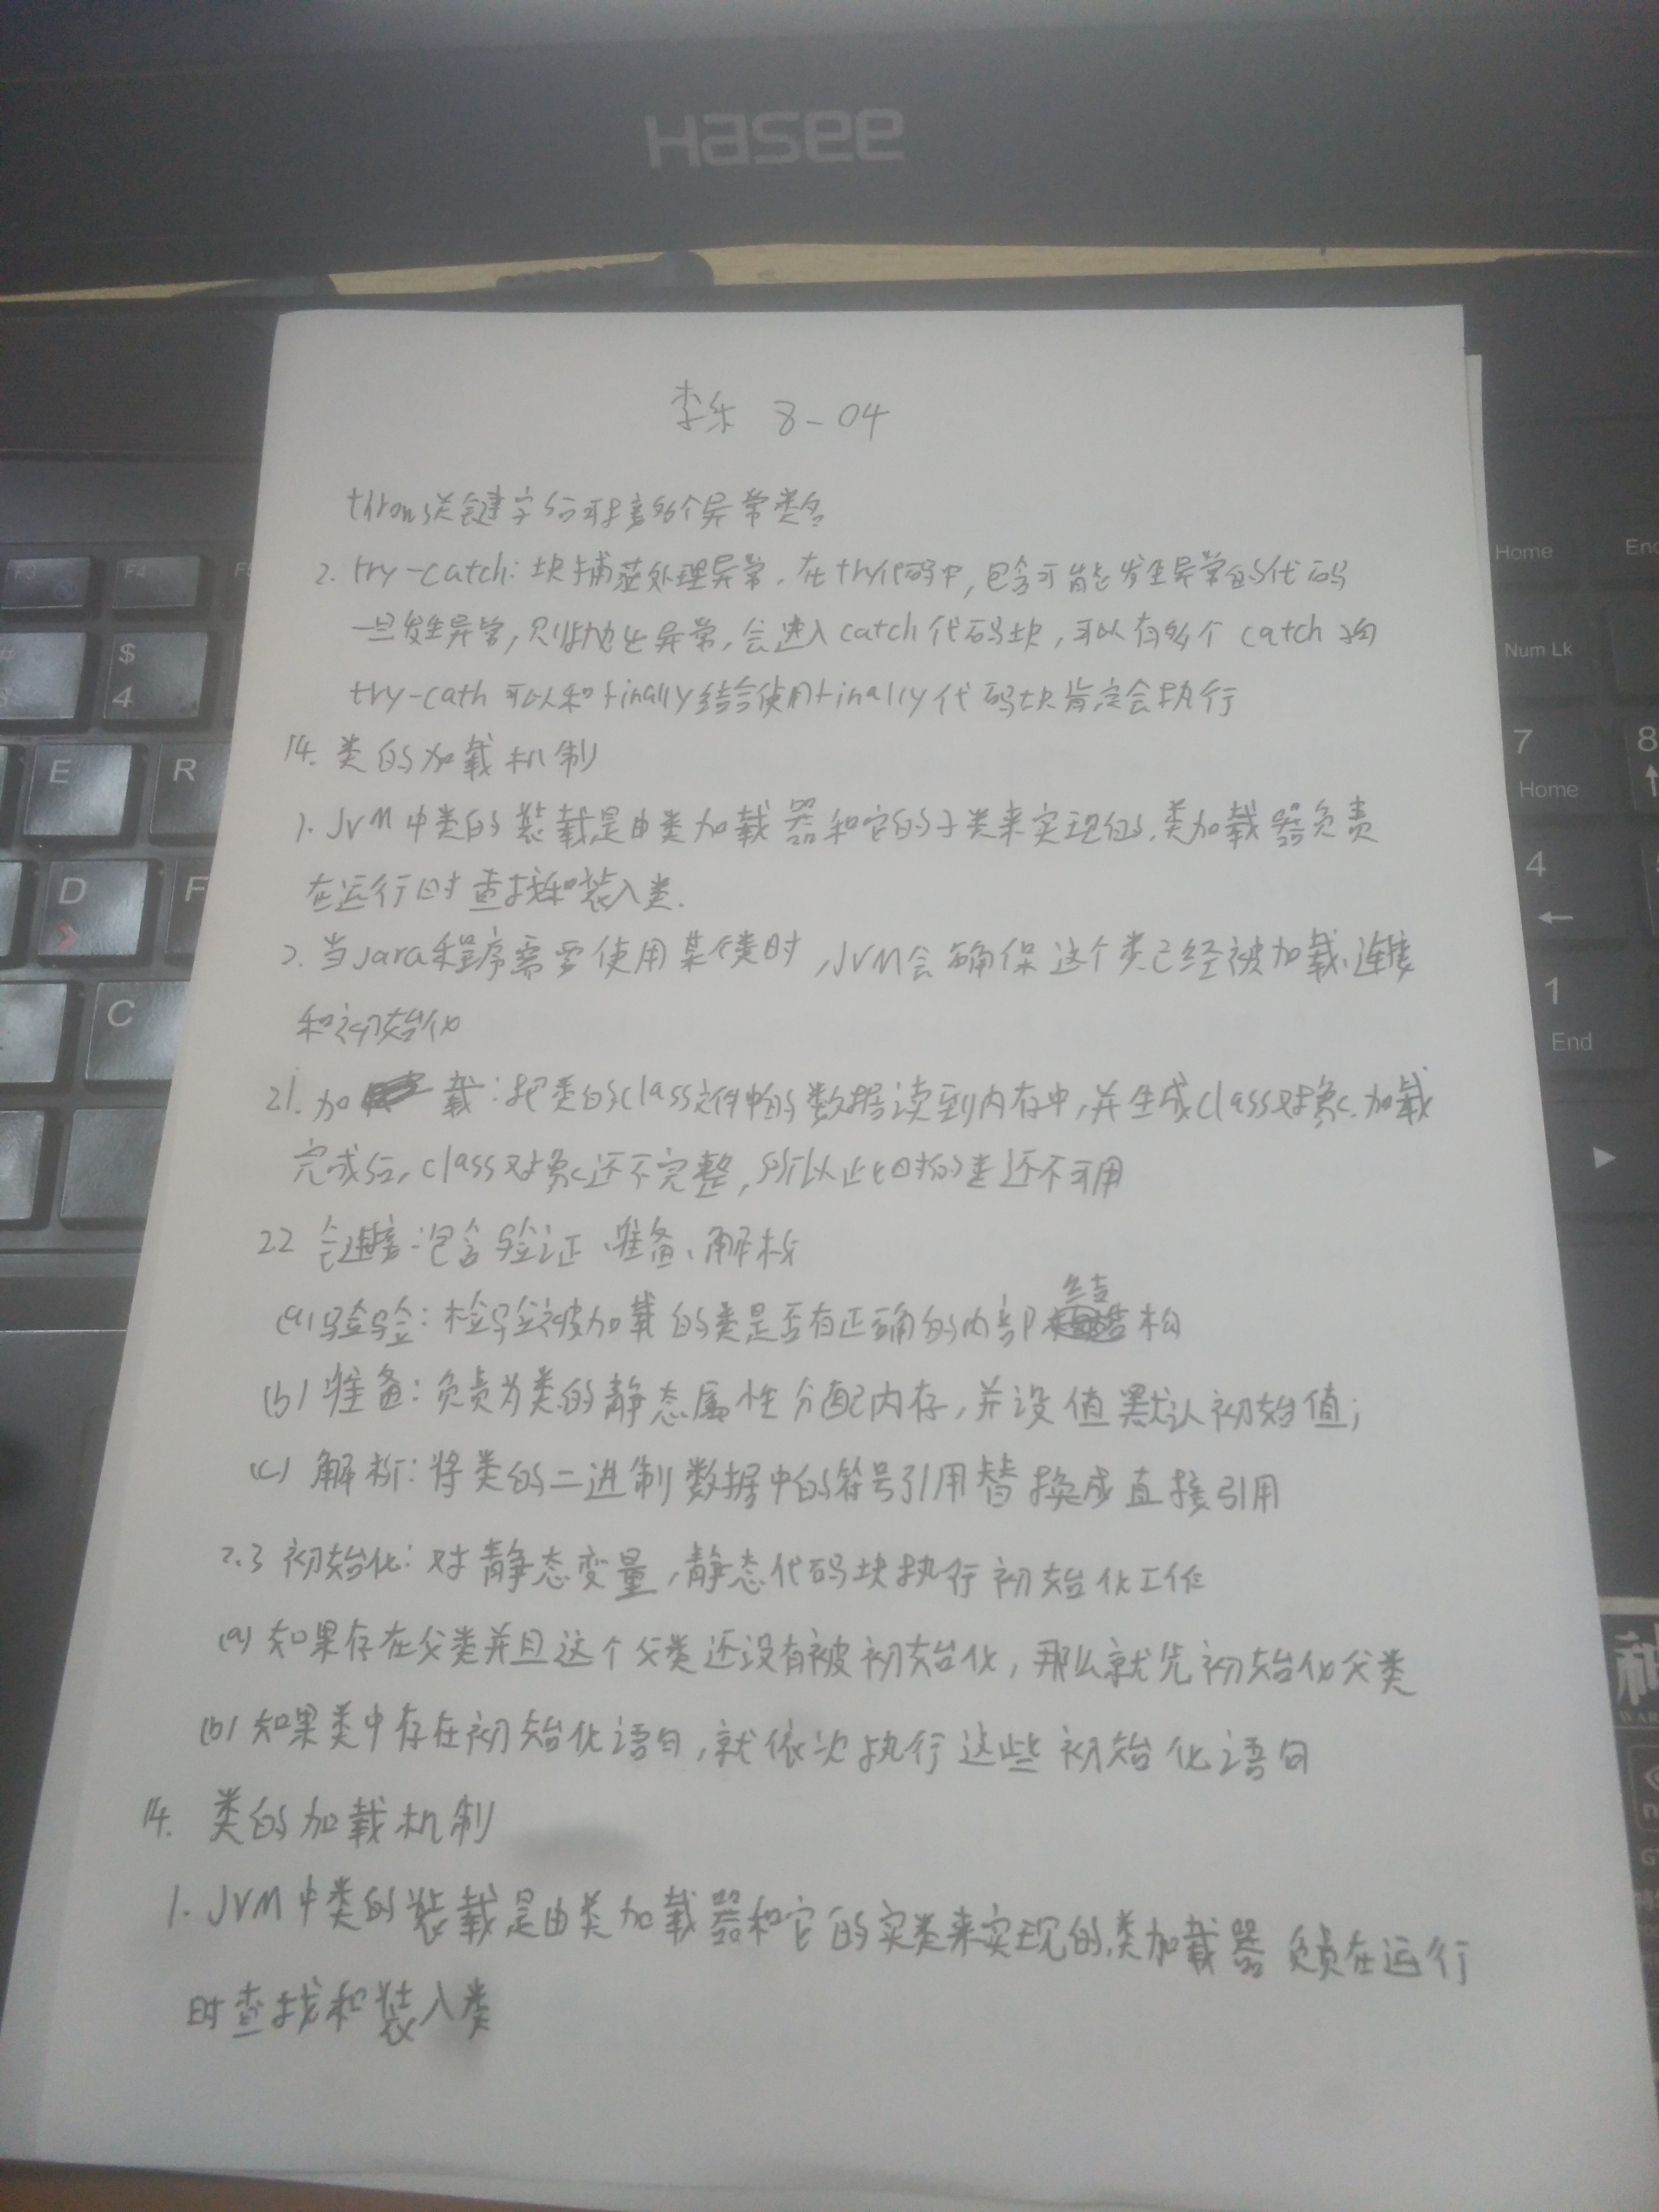 Hasee
李乐 8-04
throws关键字后可接多个异常类名
2. try-catch:块捕获处理异常.在try代码中,包含可能发生异常的代码
一旦发生异常,异常,会进入catch代码块,可以有多个catch
try-cath可以和finally结合使用finally代码块肯定会执行
14. 类的加载机制
1. JVM中类的装载是由类加载器和它的子类来实现的.类加载器负责
在运行时查找和装入类.
2. 当Java程序需要使用某个类时,JVM会确保这个类已经被加载、连接
和初始化
21. 加载:把类的class文件中的数据读到内存中,并生成class对象.加载
完成后,class对象还不完整,所以此时的类还不可用
22 连接:包含验证、准备、解析
(a)验验:检验被加载的类是否有正确的内部结构
(b)准备:负责为类的静态属性分配内存,并设值默认初始值;
(c)解析:将类的二进制数据中的符号引用替换成直接引用
2.3 初始化:对静态变量,静态代码块执行初始化工作
(a)如果存在父类并且这个父类还没有被初始化,那么就先初始化父类
(b)如果类中存在初始化语句,就依次执行这些初始化语句
14. 类的加载机制
1. JVM中类的装载是由类加载器和它的实类来实现的.类加载器负责在运行
时查找和装入类
F3
F4
$
4
E
R
D
F
C
Home
Num Lk
7
Home
8
4
←
1
End